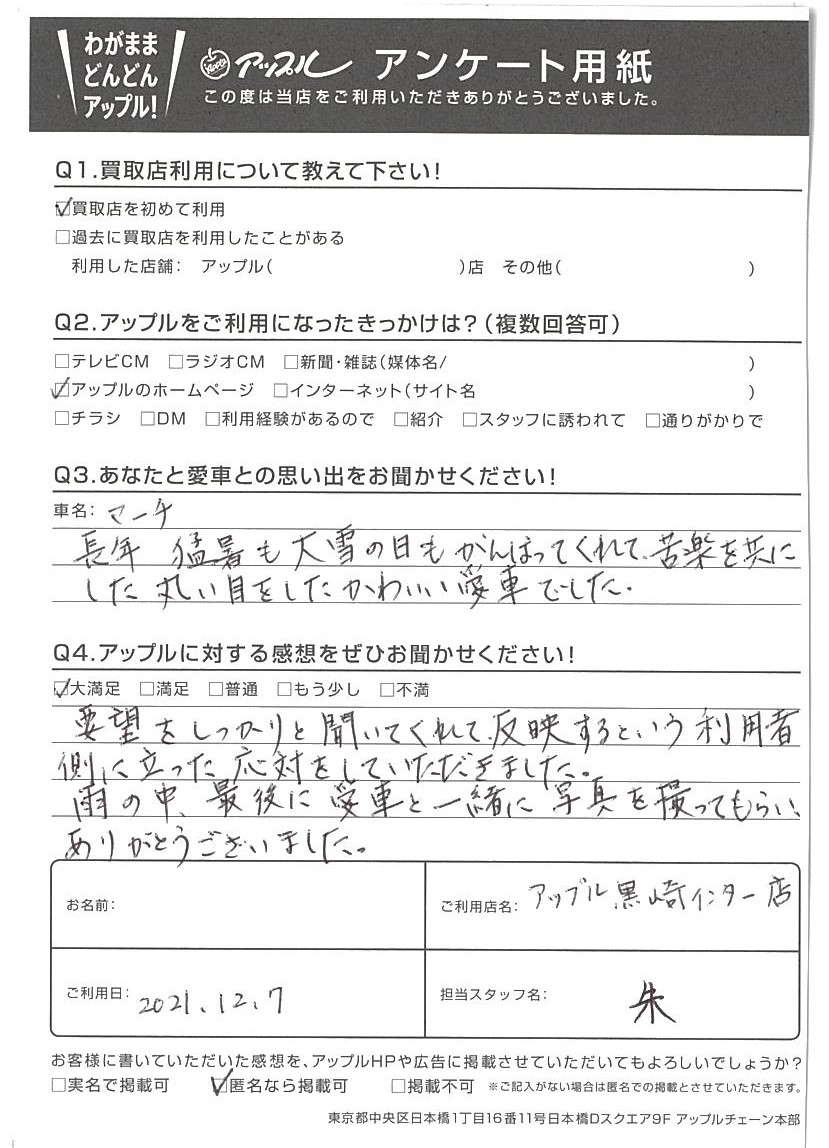 わがまま
どんどん
アップル!
アップル アンケート用紙
この度は当店をご利用いただきありがとうございました。
Q1.買取店利用について教えて下さい!
☑買取店を初めて利用
□過去に買取店を利用したことがある
利用した店舗: アップル( )店 その他( )
Q2.アップルをご利用になったきっかけは?(複数回答可)
□テレビCM □ラジオCM □新聞・雑誌(媒体名/ )
☑アップルのホームページ □インターネット(サイト名 )
□チラシ □DM □利用経験があるので □紹介 □スタッフに誘われて □通りがかりで
Q3.あなたと愛車との思い出をお聞かせください!
車名: マーチ
長年 猛暑も大雪の日もがんばってくれて、苦楽を共に
した丸い目をしたかわいい愛車でした。
Q4.アップルに対する感想をぜひお聞かせください!
☑大満足 □満足 □普通 □もう少し □不満
要望をしっかりと聞いてくれて、反映するという利用者
側に立った応対をしていただきました。
雨の中、最後に愛車と一緒に写真を撮ってもらい、
ありがとうございました。
お名前:
ご利用店名: アップル黒崎インター店
ご利用日: 2021.12.7
担当スタッフ名: 朱
お客様に書いていただいた感想を、アップルHPや広告に掲載させていただいてもよろしいでしょうか?
□実名で掲載可 ☑匿名なら掲載可 □掲載不可 ※ご記入がない場合は匿名での掲載とさせていただきます。
東京都中央区日本橋1丁目16番11号日本橋Dスクエア9F アップルチェーン本部